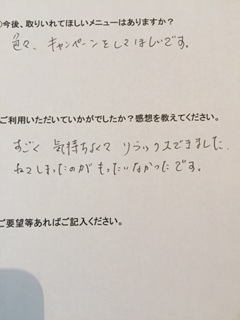 今後、取りいれてほしいメニューはありますか？
色々、キャンペーンをしてほしいです。
ご利用いただいていかがでしたか？感想を教えてください。
すごく気持ちよくてリラックスできました。
ねてしまったのがもったいなかったです。
ご要望等あればご記入ください。